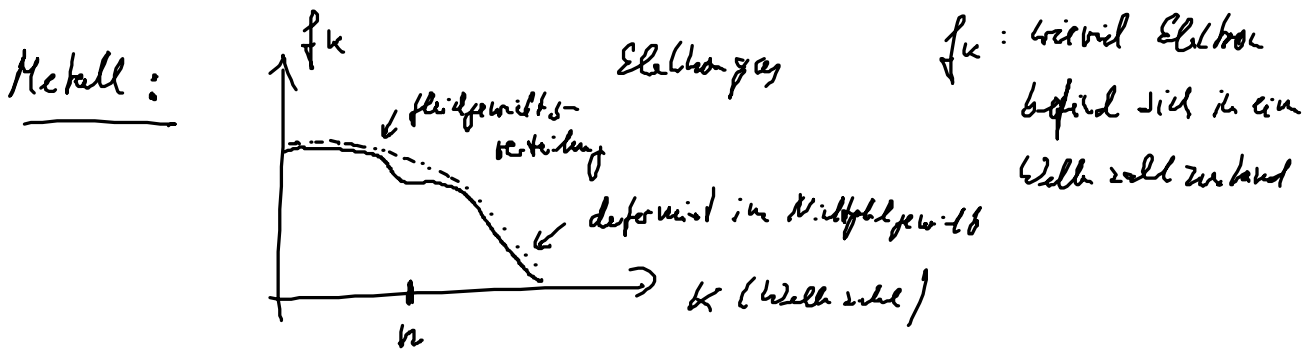 Metall :
f_k
Elektrongas
f_k : wieviel Elektron
befind sich in ein
Wellnzahlzustand
gleichgewichts-
verteilung
deformiert im Nichtgleichgewicht
k (Wellnzahl)